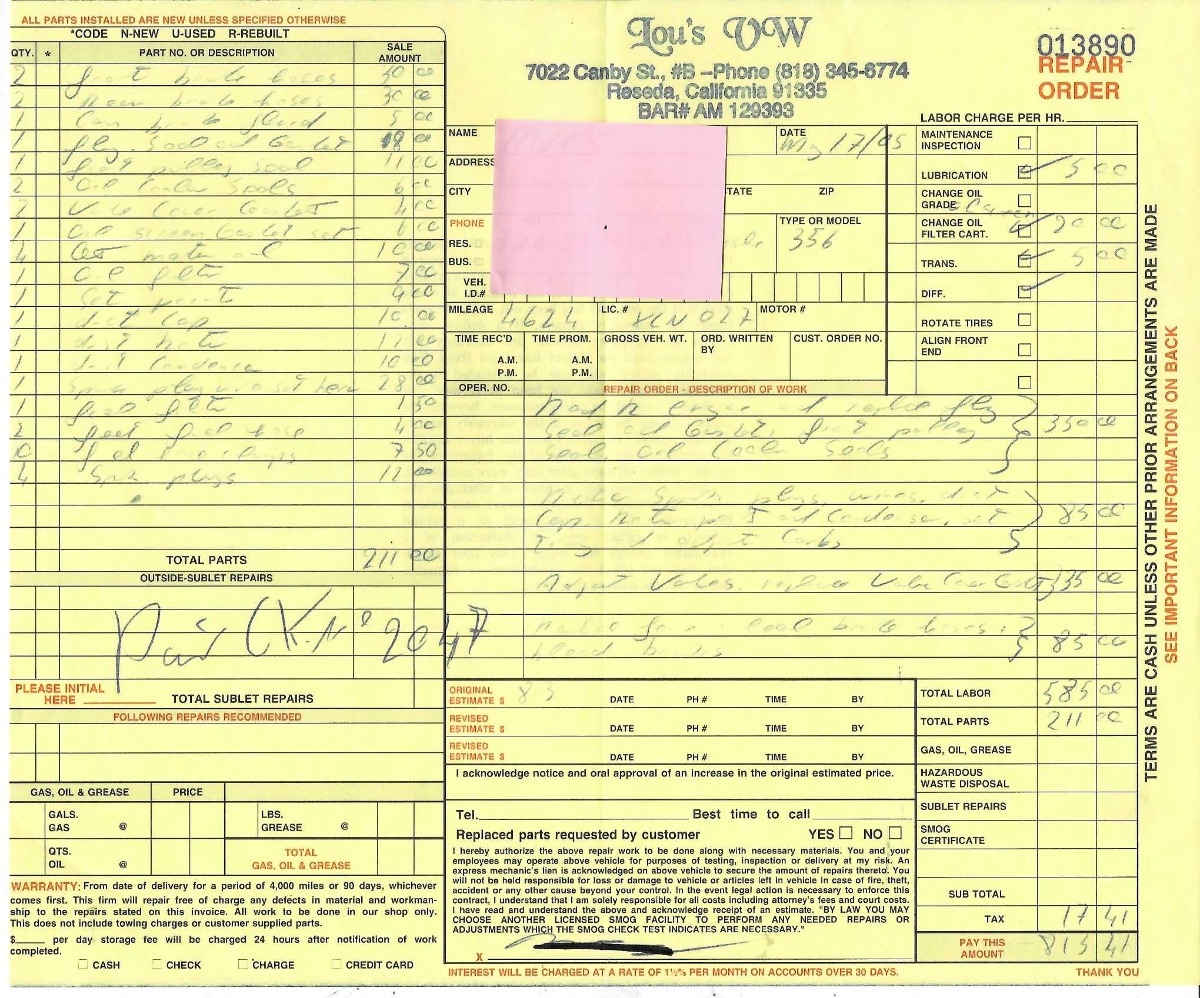 ALL PARTS INSTALLED ARE NEW UNLESS SPECIFIED OTHERWISE
*CODE N-NEW U-USED R-REBUILT
QTY. * PART NO. OR DESCRIPTION SALE AMOUNT
2 front brake hoses 30 00
2 rear brake hoses 30 00
1 Can brake fluid 5 00
1 fly. Seal and Gasket 00
1 front pulley Seal 11 00
2 Oil Cooler Seals 6 00
2 Valve Cover Gasket 4 00
1 Oil screen Gasket set 6 00
4 Qt motor oil 10 00
1 Oil filter 7 00
1 Set point 9 00
1 dist Cap 10 00
1 dist Rotor 11 00
1 dist Condenser 10 00
1 Spark plug wire set 28 00
1 fuel filter 1 50
2 feet fuel hose 4 00
10 fuel hose clamps 7 50
4 Spark plugs 12 00
TOTAL PARTS 211 00
OUTSIDE-SUBLET REPAIRS
Paid CK. Nº 2047
PLEASE INITIAL HERE
TOTAL SUBLET REPAIRS
FOLLOWING REPAIRS RECOMMENDED
GAS, OIL & GREASE PRICE
GALS. GAS @
LBS. GREASE @
QTS. OIL @
TOTAL GAS, OIL & GREASE
WARRANTY: From date of delivery for a period of 4,000 miles or 90 days, whichever
comes first. This firm will repair free of charge any defects in material and workman-
ship to the repairs stated on this invoice. All work to be done in our shop only.
This does not include towing charges or customer supplied parts.
$ per day storage fee will be charged 24 hours after notification of work
completed.
CASH CHECK CHARGE CREDIT CARD
Lou's VW
7022 Canby St., #B –Phone (818) 345-6774
Reseda, California 91335
BAR# AM 129393
013890
REPAIR
ORDER
NAME
DATE 17/05
ADDRESS
CITY STATE ZIP
PHONE
RES.
BUS.
TYPE OR MODEL
356
VEH. I.D.#
MILEAGE 4624 LIC. # XCN 027 MOTOR #
TIME REC'D TIME PROM. GROSS VEH. WT. ORD. WRITTEN BY CUST. ORDER NO.
A.M. A.M.
P.M. P.M.
OPER. NO. REPAIR ORDER - DESCRIPTION OF WORK
engine replace fly
Seal and Gasket, front pulley 350 00
Seal, Oil Cooler Seals
Spark plugs, wires, dist
Cap, Rotor, point and Condenser, set 85 00
Timing adjust Carbs
Adjust Valves, replace Valve Cover Gasket 35 00
brake hoses
bleed brakes 85 00
LABOR CHARGE PER HR.
MAINTENANCE INSPECTION
LUBRICATION 5 00
CHANGE OIL GRADE
CHANGE OIL FILTER CART. 20 00
TRANS. 5 00
DIFF.
ROTATE TIRES
ALIGN FRONT END
TERMS ARE CASH UNLESS OTHER PRIOR ARRANGEMENTS ARE MADE
SEE IMPORTANT INFORMATION ON BACK
ORIGINAL ESTIMATE $ DATE PH # TIME BY
REVISED ESTIMATE $ DATE PH # TIME BY
REVISED ESTIMATE $ DATE PH # TIME BY
I acknowledge notice and oral approval of an increase in the original estimated price.
Tel. Best time to call
Replaced parts requested by customer YES NO
I hereby authorize the above repair work to be done along with necessary materials. You and your
employees may operate above vehicle for purposes of testing, inspection or delivery at my risk. An
express mechanic's lien is acknowledged on above vehicle to secure the amount of repairs thereto. You
will not be held responsible for loss or damage to vehicle or articles left in vehicle in case of fire, theft,
accident or any other cause beyond your control. In the event legal action is necessary to enforce this
contract, I understand that I am solely responsible for all costs including attorney's fees and court costs.
I have read and understand the above and acknowledge receipt of an estimate. "BY LAW YOU MAY
CHOOSE ANOTHER LICENSED SMOG FACILITY TO PERFORM ANY NEEDED REPAIRS OR
ADJUSTMENTS WHICH THE SMOG CHECK TEST INDICATES ARE NECESSARY."
X
INTEREST WILL BE CHARGED AT A RATE OF 1½% PER MONTH ON ACCOUNTS OVER 30 DAYS.
TOTAL LABOR 585 00
TOTAL PARTS 211 00
GAS, OIL, GREASE
HAZARDOUS WASTE DISPOSAL
SUBLET REPAIRS
SMOG CERTIFICATE
SUB TOTAL
TAX 17 41
PAY THIS AMOUNT 813 41
THANK YOU